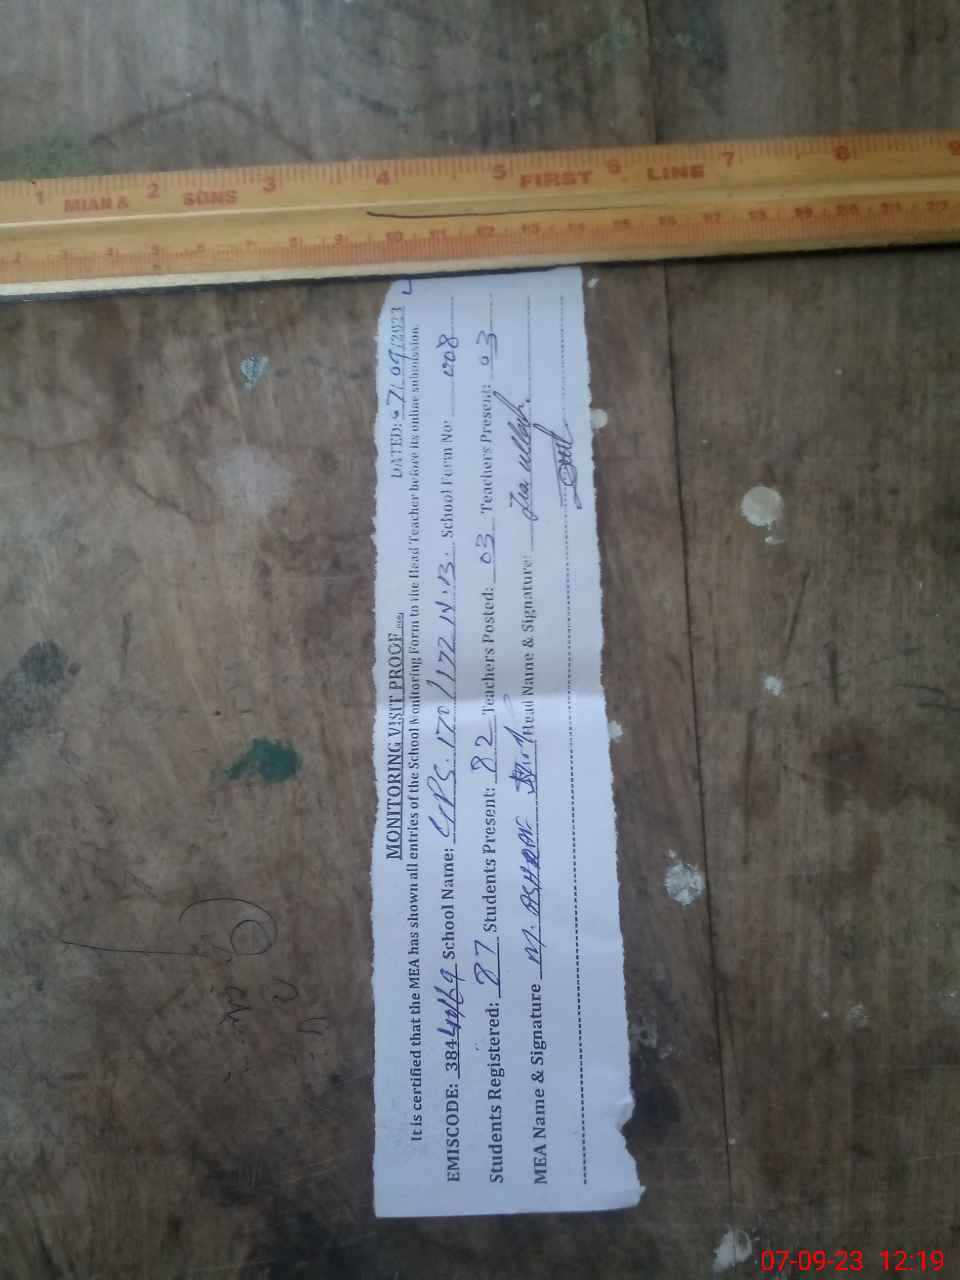 1 2 3 4 5 6 7 8 9
MIAN & SONS FIRST LINE
MONITORING VISIT PROOF
DATED: 07/09/2023
It is certified that the MEA has shown all entries of the School Monitoring Form to the Head Teacher before its online submission.
EMISCODE: 384 School Name: GPS. 170/172 N.B. School Form No: 008
Students Registered: 87 Students Present: 82 Teachers Posted: 03 Teachers Present: 03
MEA Name & Signature M. ASHRAF Head Name & Signature: Zia ullah
07-09-23 12:19